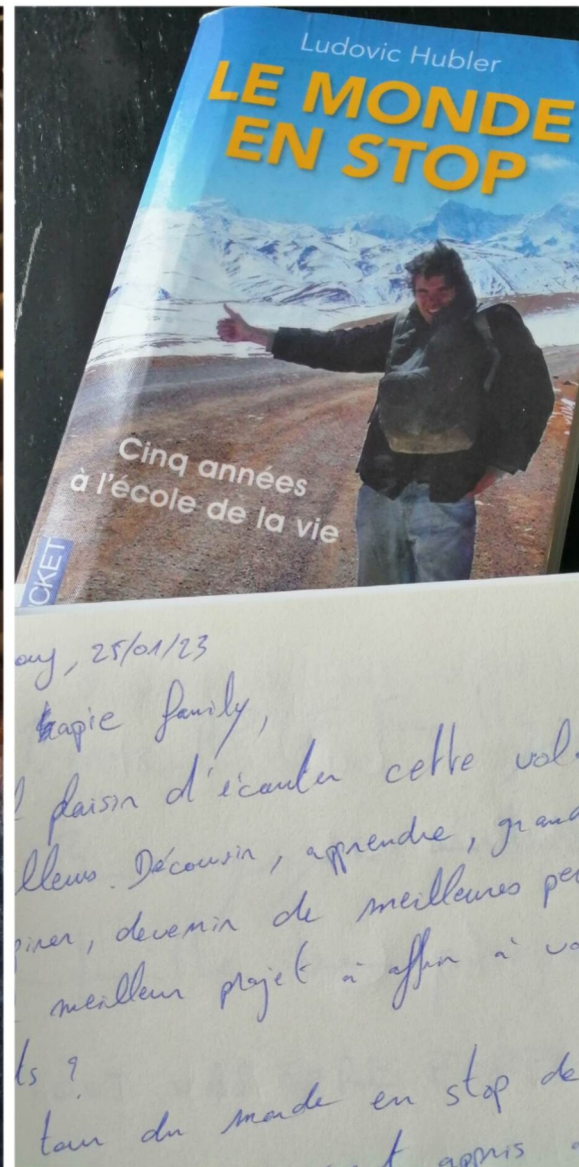 Ludovic Hubler
LE MONDE
EN STOP
Cinq années
à l'école de la vie
CKET
, 25/01/23
family,
plaisir d'écouter cette vol
lleurs. Découvrir, apprendre, grand
pirer, devenir de meilleures per
meilleur projet à offrir à vo
ts ?
tour du monde en stop de
appris